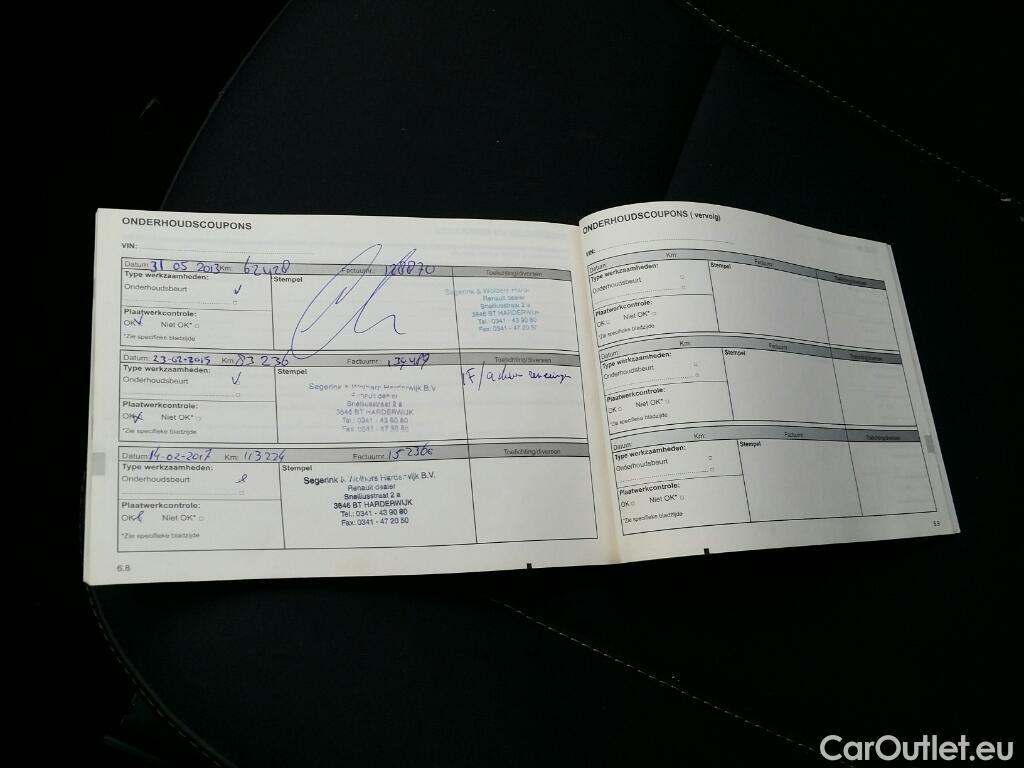 ONDERHOUDSCOUPONS
VIN:
Datum: 31 05 2013 Km: 62428 Factuurnr. 128870 Toelichting/diversen
Type werkzaamheden: Stempel
Onderhoudsbeurt
Segerink & Wolbers Harde
Renault dealer
Snelliusstraat 2 a
3846 BT HARDERWIJK
Tel.: 0341 - 43 90 80
Fax: 0341 - 47 20 50
Plaatwerkcontrole:
OK Niet OK*
*Zie specifieke bladzijde
Datum: 23-02-2015 Km: 83236 Factuurnr. Toelichting/diversen
Type werkzaamheden: Stempel
Onderhoudsbeurt
Segerink & Wolbers Harderwijk B.V.
Renault dealer
Snelliusstraat 2 a
3846 BT HARDERWIJK
Tel.: 0341 - 43 90 80
Plaatwerkcontrole:
OK Niet OK*
*Zie specifieke bladzijde
Datum: 14-02-2017 Km: 113224 Factuurnr. 152366 Toelichting/diversen
Type werkzaamheden: Stempel
Onderhoudsbeurt
Segerink & Wolbers Harderwijk B.V.
Renault dealer
Snelliusstraat 2 a
3846 BT HARDERWIJK
Tel.: 0341 - 43 90 80
Fax: 0341 - 47 20 50
Plaatwerkcontrole:
OK Niet OK*
*Zie specifieke bladzijde
6.8
ONDERHOUDSCOUPONS ( vervolg)
VIN:
Datum: Km: Factuurnr. Toelichting/diversen
Type werkzaamheden: Stempel
Onderhoudsbeurt
Plaatwerkcontrole:
OK Niet OK*
*Zie specifieke bladzijde
Datum: Km: Factuurnr. Toelichting/diversen
Type werkzaamheden: Stempel
Onderhoudsbeurt
Plaatwerkcontrole:
OK Niet OK*
*Zie specifieke bladzijde
Datum: Km: Factuurnr. Toelichting/diversen
Type werkzaamheden: Stempel
Onderhoudsbeurt
Plaatwerkcontrole:
OK Niet OK*
*Zie specifieke bladzijde
6.9
CarOutlet.eu